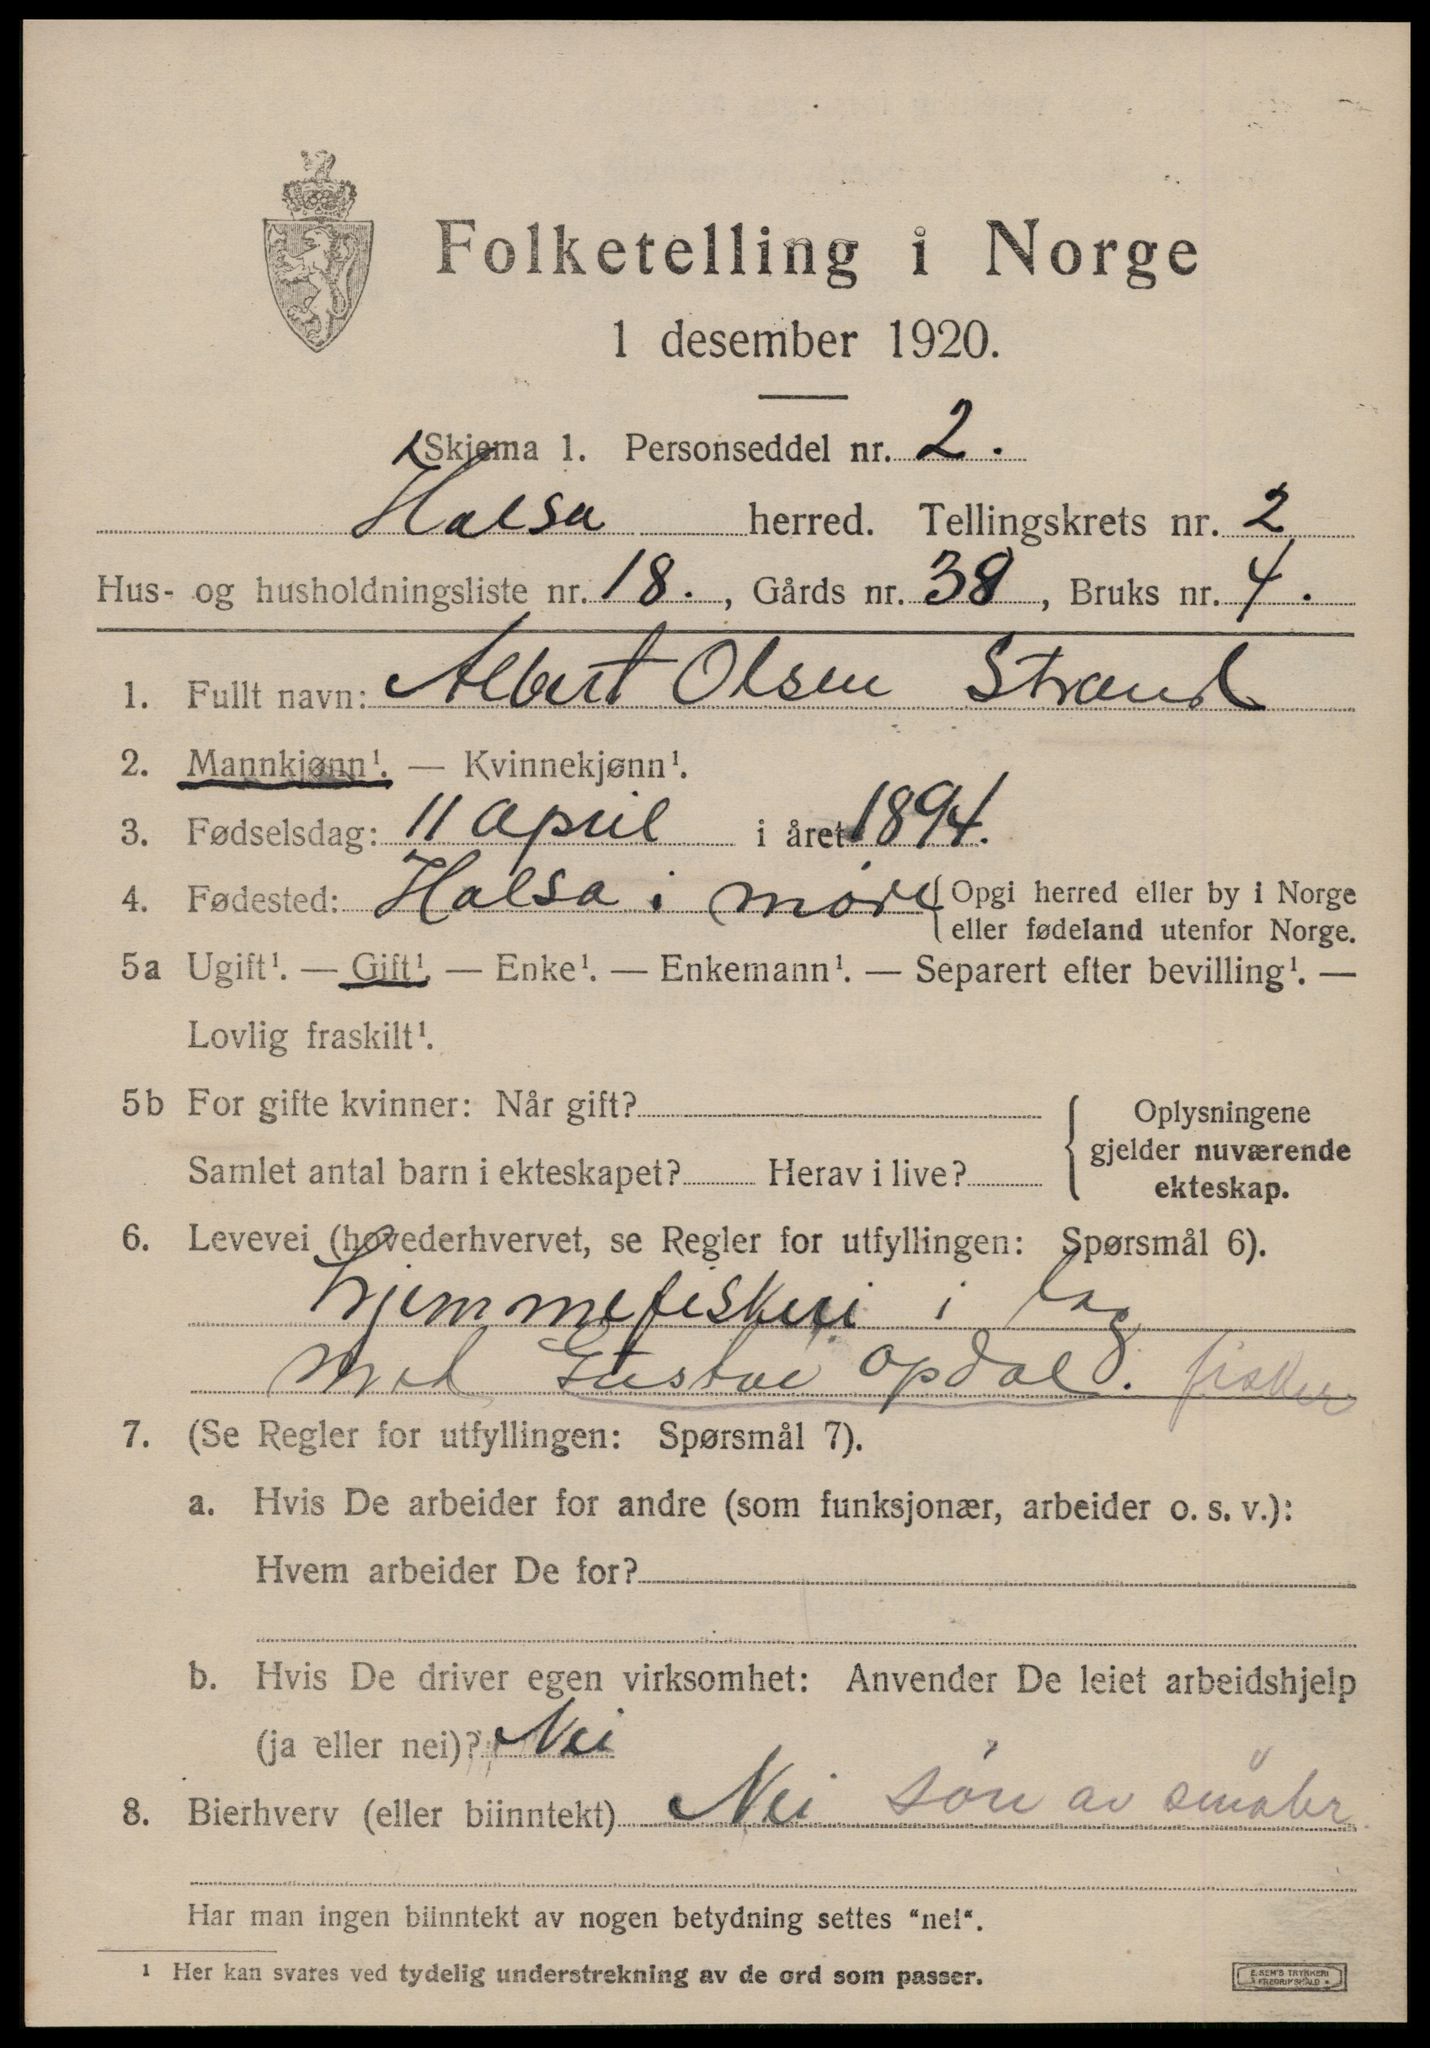 Folketelling i Norge
1 desember 1920.
Skjema 1. Personseddel nr. 2.
Halsa herred. Tellingskrets nr. 2
Hus- og husholdningsliste nr. 18., Gårds nr. 38, Bruks nr. 4.
1. Fullt navn: Albert Olsen Strand
2. Mannkjønn¹. — Kvinnekjønn¹.
3. Fødselsdag: 11 april i året 1894.
4. Fødested: Halsa i møre {Opgi herred eller by i Norge
eller fødeland utenfor Norge.
5a Ugift¹. — Gift¹. — Enke¹. — Enkemann¹. — Separert efter bevilling¹. —
Lovlig fraskilt¹.
5b For gifte kvinner: Når gift? { Oplysningene
gjelder nuværende
Samlet antal barn i ekteskapet? Herav i live? ekteskap.
6. Levevei (hovederhvervet, se Regler for utfyllingen: Spørsmål 6).
hjemmefiskeri i lag
med Gustav opdal. fisker
7. (Se Regler for utfyllingen: Spørsmål 7).
a. Hvis De arbeider for andre (som funksjonær, arbeider o. s. v.):
Hvem arbeider De for?
b. Hvis De driver egen virksomhet: Anvender De leiet arbeidshjelp
(ja eller nei)? Nei
8. Bierhverv (eller biinntekt) Nei søn av småbr
Har man ingen biinntekt av nogen betydning settes "nei".
¹ Her kan svares ved tydelig understrekning av de ord som passer.
E. SEM'S TRYKKERI
FREDRIKSHALD